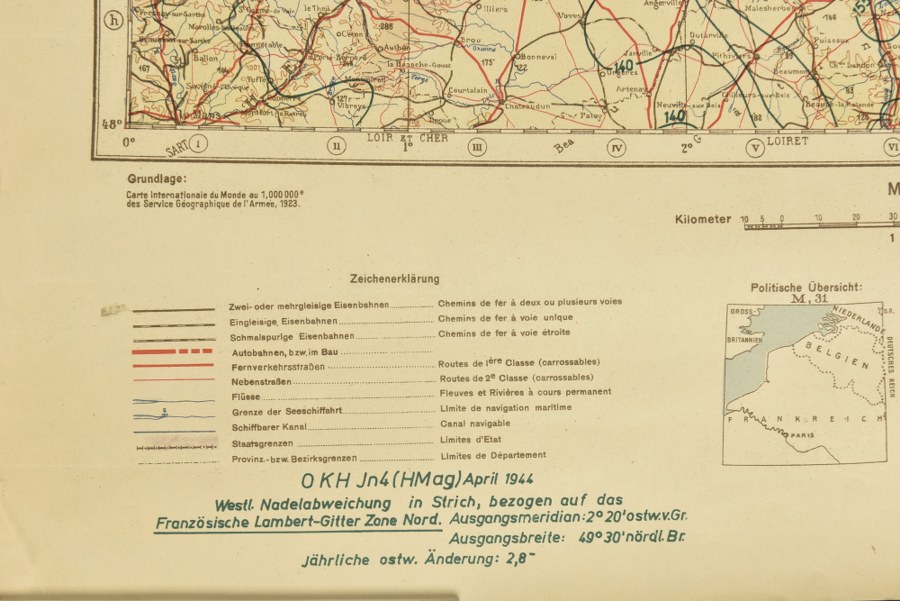 h
le Theil
Illiers
Voves
Angerville
Malesherbes
Ballon
Authon
Brou
Bonneval
Janville
Outarville
Pithiviers
Puiseaux
285
146
167
175
122
140
Courtalain
Chateaudun
Artenay
Neuville-aux-Bois
Beaumont
127
Vibraye
Patay
140
182
48°
0°
SART
I
II
LOIR ET CHER
1°
III
Bea
IV
2° G
V
LOIRET
VI
Grundlage:
Carte Internationale du Monde au 1,000 000e
des Service Géographique de l'Armée, 1923.
M
Kilometer 10 5 0 10 20 30
1
Zeichenerklärung
Zwei- oder mehrgleisige Eisenbahnen Chemins de fer à deux ou plusieurs voies
Eingleisige, Eisenbahnen Chemins de fer à voie unique
Schmalspurige Eisenbahnen Chemins de fer à voie étroite
Autobahnen, bzw. im Bau
Fernverkehrsstraßen Routes de 1ère Classe (carrossables)
Nebenstraßen Routes de 2e Classe (carrossables)
Flüsse Fleuves et Rivières à cours permanent
Grenze der Seeschiffahrt Limite de navigation maritime
Schiffbarer Kanal Canal navigable
Staatsgrenzen Limites d'Etat
Provinz- bzw. Bezirksgrenzen Limites de Département
Politische Übersicht:
M, 31
GROSS-
BRITANNIEN
NIEDERLANDE
D.R.
BELGIEN
DEUTSCHES REICH
FRANKREICH
PARIS
OKH Jn4 (HMag) April 1944
Westl. Nadelabweichung in Strich, bezogen auf das
Französische Lambert-Gitter Zone Nord. Ausgangsmeridian: 2° 20' ostw. v. Gr.
Ausgangsbreite: 49° 30' nördl. Br.
Jährliche ostw. Änderung: 2,8⁻